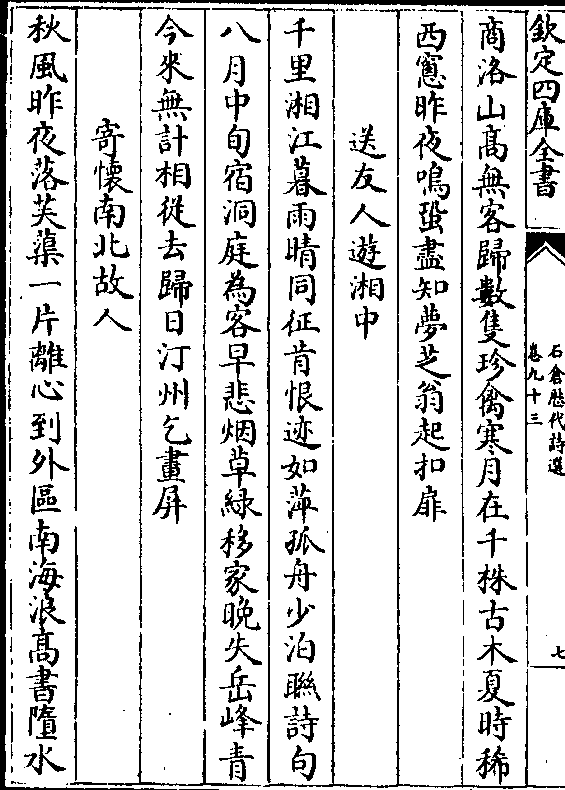 欽定四庫全書
石倉歷代詩選
卷九十三
七
商洛山髙無客歸數隻珍禽寒月在千株古木夏時稀
西窻昨夜鳴蛩盡知夢芝翁起扣扉
送友人遊湘中
千里湘江暮雨晴同征肯恨迹如萍孤舟少泊聮詩句
八月中旬宿洞庭為客早悲烟草緑移家晚失岳峰青
今來無計相從去歸日汀州乞畫屏
寄懷南北故人
秋風昨夜落芙蕖一片離心到外區南海浪髙書墮水